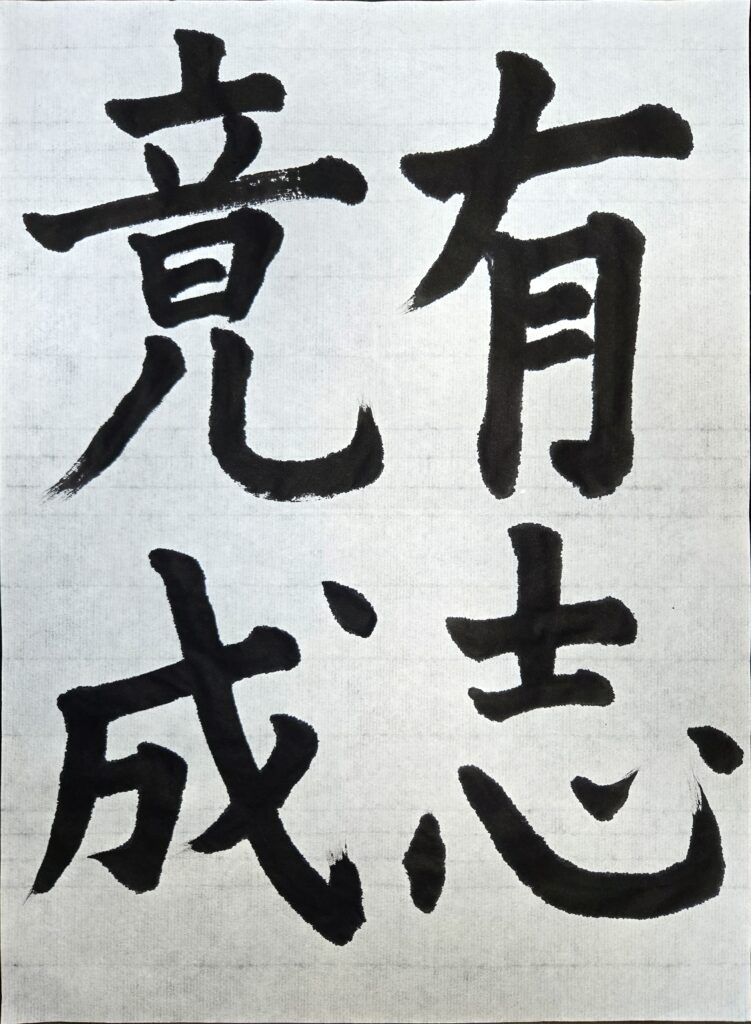 有志
竟成